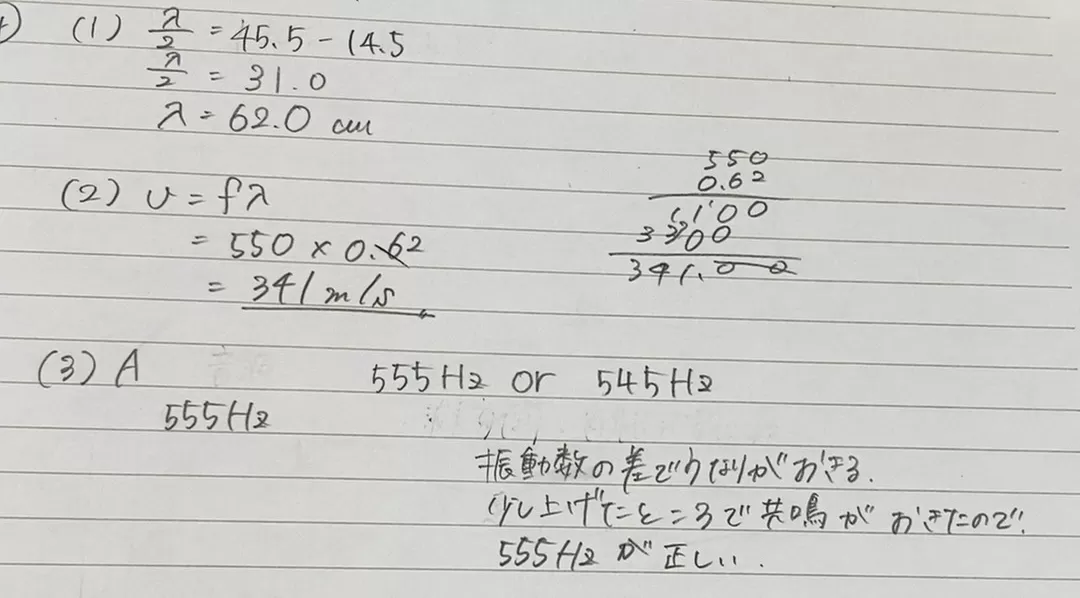 (1) λ/2 = 45.5 - 14.5
λ/2 = 31.0
λ = 62.0 cm
(2) v = fλ
= 550 × 0.62
= 341 m/s
550
0.62
1100
3300
341.00
(3) A
555Hz
555Hz or 545Hz
振動数の差でうなりがおきる.
少し上げたところで共鳴がおきたので.
555Hzが正しい.